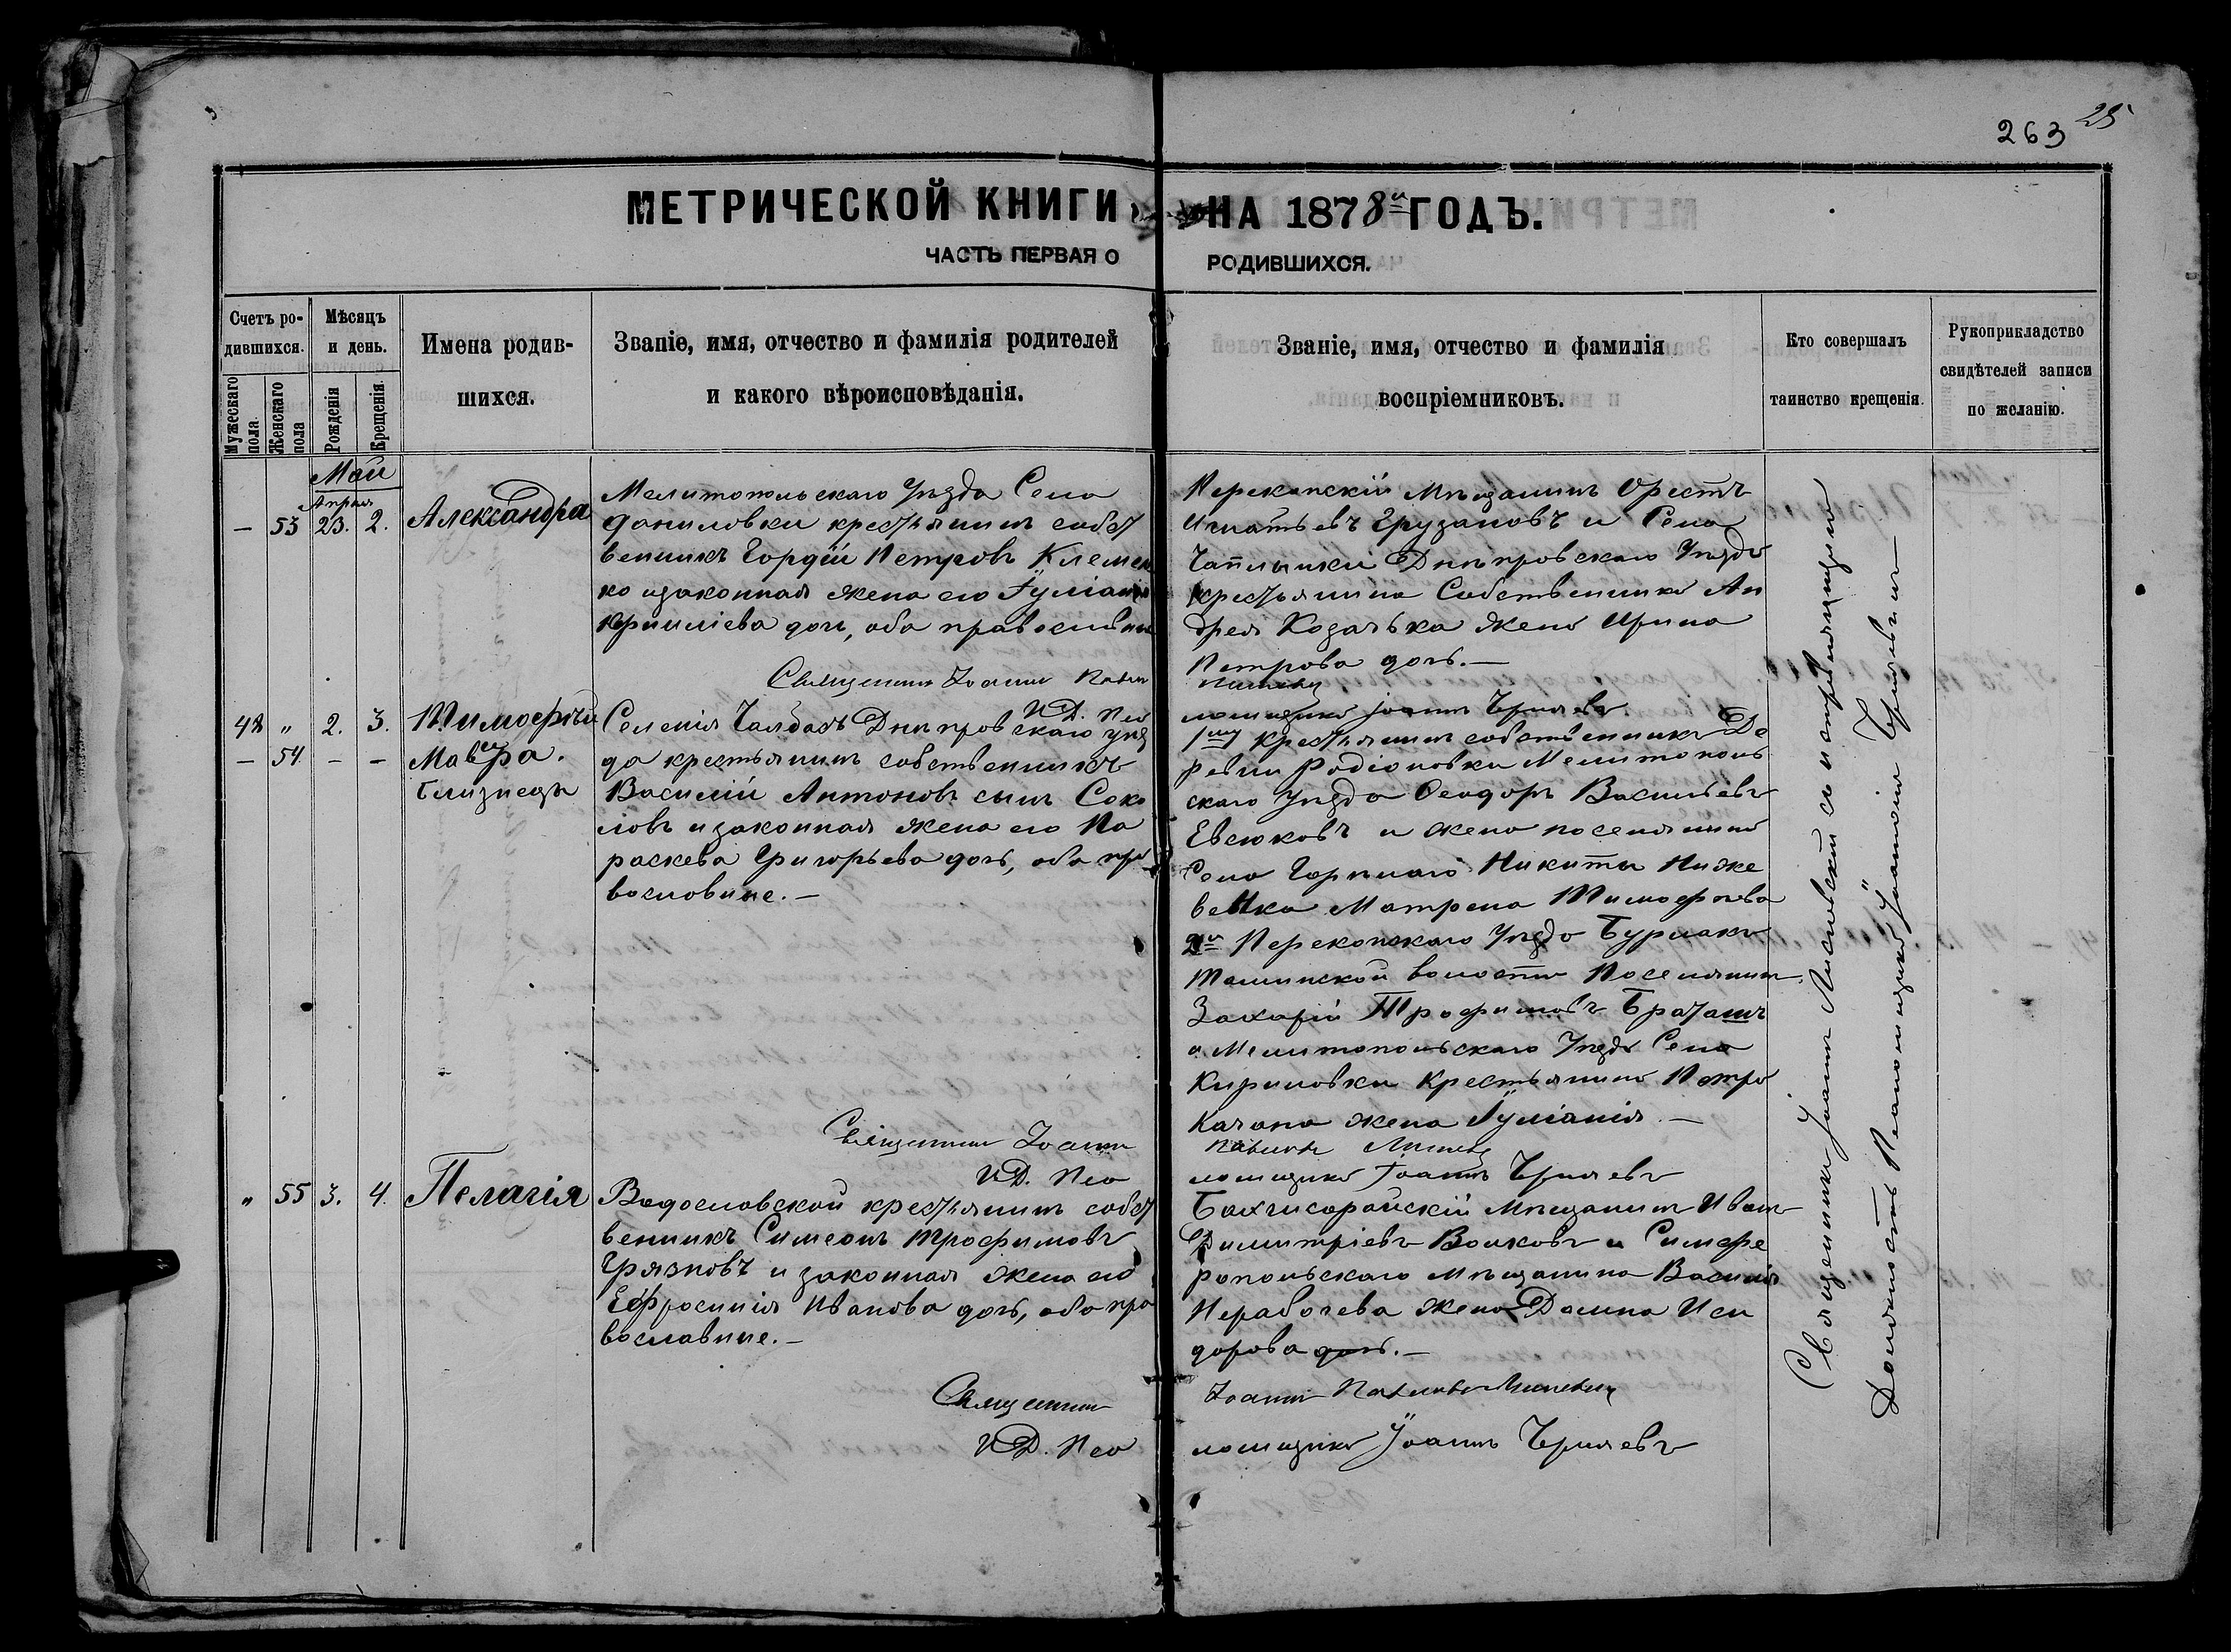 263 25
МЕТРИЧЕСКОЙ КНИГИ НА 1878й ГОДЪ.
ЧАСТЬ ПЕРВАЯ О РОДИВШИХСЯ.
Счетъ ро-
дившихся.
Мужескаго пола.
Женскаго пола
Мѣсяцъ
и день.
Рожденія
Крещенія.
Имена родив-
шихся.
Званіе, имя, отчество и фамилія родителей
и какого вѣроисповѣданія.
Званіе, имя, отчество и фамилія
воспріемниковъ.
Кто совершалъ
таинство крещенія.
Рукоприкладство
свидѣтелей записи
по желанію.
Май
Апрѣля
— 53 23. 2. Александра
Мелитопольскаго Уѣзда Села
Даниловки крестьянинъ собст
венникъ Гордій Петровъ Клемен
ко и законная жена его Іуліанія
Кириллова дочь, оба православные
Перекопскій Мѣщанинъ Орестъ
Игнатьевъ Грузановъ и Села
Чаплынки Днѣпровскаго Уѣзда
крестьянина Собственника Ан
дрея Козалька жена Ирина
Петрова дочь.—
Священникъ Іоаннъ
И.Д. Псаломщика Іоаннъ Черняевъ
48 „ 2. 3. Тимофѣй
— 54. — — Мавра.
близнецы
Селенія Чалбасъ Днѣпровскаго уѣз
да крестьянинъ собственникъ
Василій Антоновъ сынъ Соко
ловъ и законная жена его Па
раскева Григорьева дочь, оба пра
вославные.—
1му крестьянинъ собственникъ Де
ревни Родіоновки Мелитополь
скаго Уѣзда Ѳеодоръ Васильевъ
Евсюковъ и жена поселянина
Села Горнаго Никиты Ниже
Матрена Тимофѣева
2й Перекопскаго Уѣзда Бурлакъ
Тамминской волости Поселянинъ
Захарій Трофимовъ
и Мелитопольскаго Уѣзда Села
Кириловки Крестьянина Петра
Качана жена Іуліанія.—
Священникъ Іоаннъ
И.Д. Псаломщика Іоаннъ Черняевъ
„ 55 3. 4. Пелагія
Богословской крестьянинъ собст
венникъ Симеонъ Трофимовъ
Грязновъ и законная жена его
Ефросинія Иванова дочь, оба пра
вославные.—
Бахчисарайскій Мѣщанинъ Иванъ
Димитріевъ Волковъ и Симфе
ропольскаго мѣщанина Василія
Нерабочева жена Домна Иси
дорова дочь.—
Священникъ Іоаннъ
И.Д. Псаломщика Іоаннъ Черняевъ
Священникъ Іоаннъ съ исправляющимъ
Должность Псаломщика Іоанномъ Черняевымъ